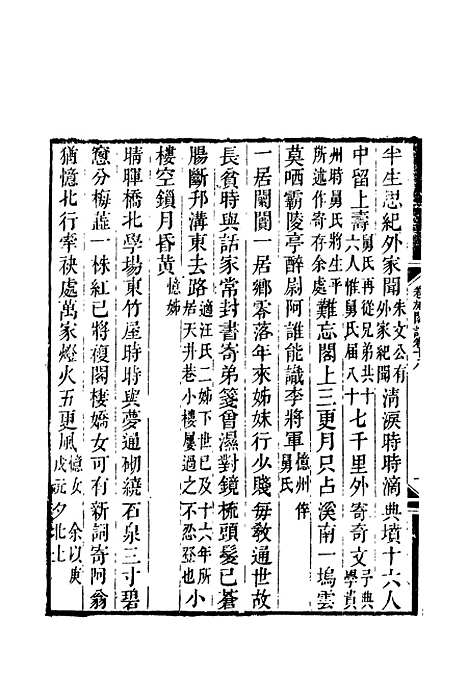 半生思紀外家聞朱文公有外家紀聞清淚時時滴典墳十六人
中留上壽舅氏再從兄弟共十六人惟舅氏届八十七千里外寄奇文予典學貴
州時舅氏將生平所述作寄存余處難忘閣上三更月只占溪南一塢雲
莫哂霸陵亭醉尉阿誰能識李將軍憶州倅舅氏
一居闤闠一居鄉零落年來姊妹行少賤毎敎通世故
長貧時與話家常封書寄弟箋曾濕對鏡梳頭髮已蒼
腸斷邗溝東去路適汪氏二姊下世及十六年所居天井巷小樓屢過之不忍登也小
樓空鎖月昏黃憶姊
晴暉橋北學塲東竹屋時時與夢通砌繞石泉三寸碧
窻分梅蘂一株紅已將複閣棲嬌女可有新詞寄阿翁
猶憶北行牽袂處萬家燈火五更風憶女余以庚戌元夕北上
卷施閣詩卷十八